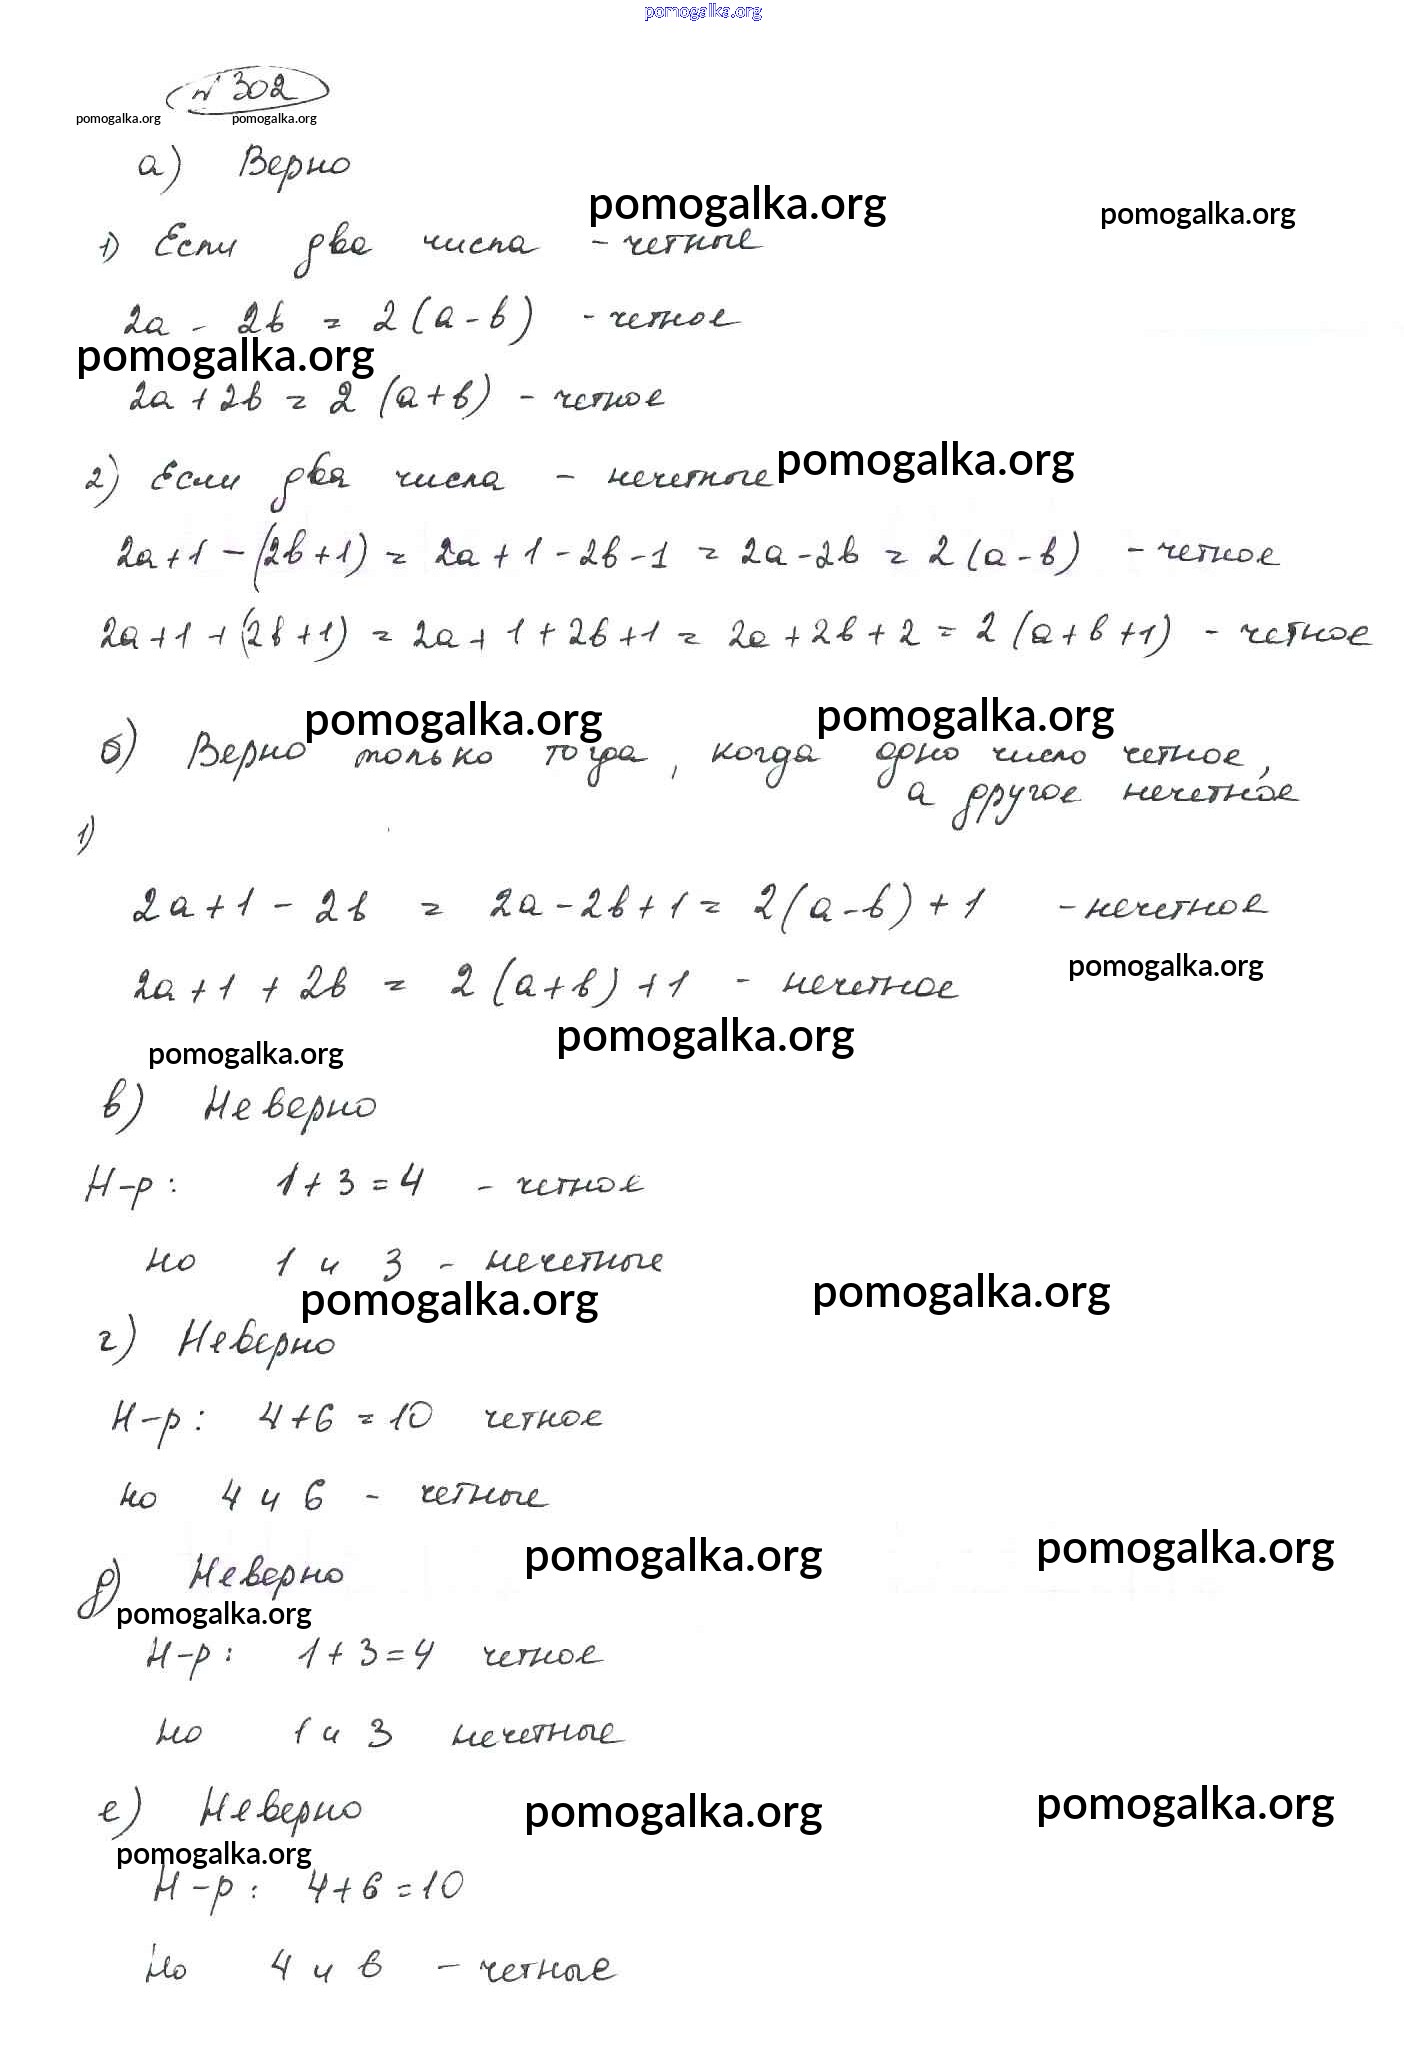 pomogalka.org
№ 302
pomogalka.org pomogalka.org
а) Верно
pomogalka.org pomogalka.org
1) Если два числа - четные
2a - 2b = 2(a-b) - четное
pomogalka.org
2a + 2b = 2 (a+b) - четное
pomogalka.org
2) Если два числа - нечетные
2a+1 - (2b+1) = 2a+1-2b-1 = 2a-2b = 2(a-b) - четное
2a+1+(2b+1) = 2a+1+2b+1 = 2a+2b+2 = 2(a+b+1) - четное
pomogalka.org pomogalka.org
б) Верно только тогда, когда одно число четное,
а другое нечетное
1)
2a+1 - 2b = 2a-2b+1 = 2(a-b)+1 - нечетное
pomogalka.org
2a+1+2b = 2(a+b)+1 - нечетное
pomogalka.org pomogalka.org
в) Неверно
Н-р: 1+3=4 - четное
но 1 и 3 - нечетные
pomogalka.org pomogalka.org
г) Неверно
Н-р: 4+6=10 четное
но 4 и 6 - четные
pomogalka.org pomogalka.org
д) Неверно
pomogalka.org
Н-р: 1+3=4 четное
но 1 и 3 нечетные
е) Неверно
pomogalka.org pomogalka.org
pomogalka.org
Н-р: 4+6=10
Но 4 и 6 - четные